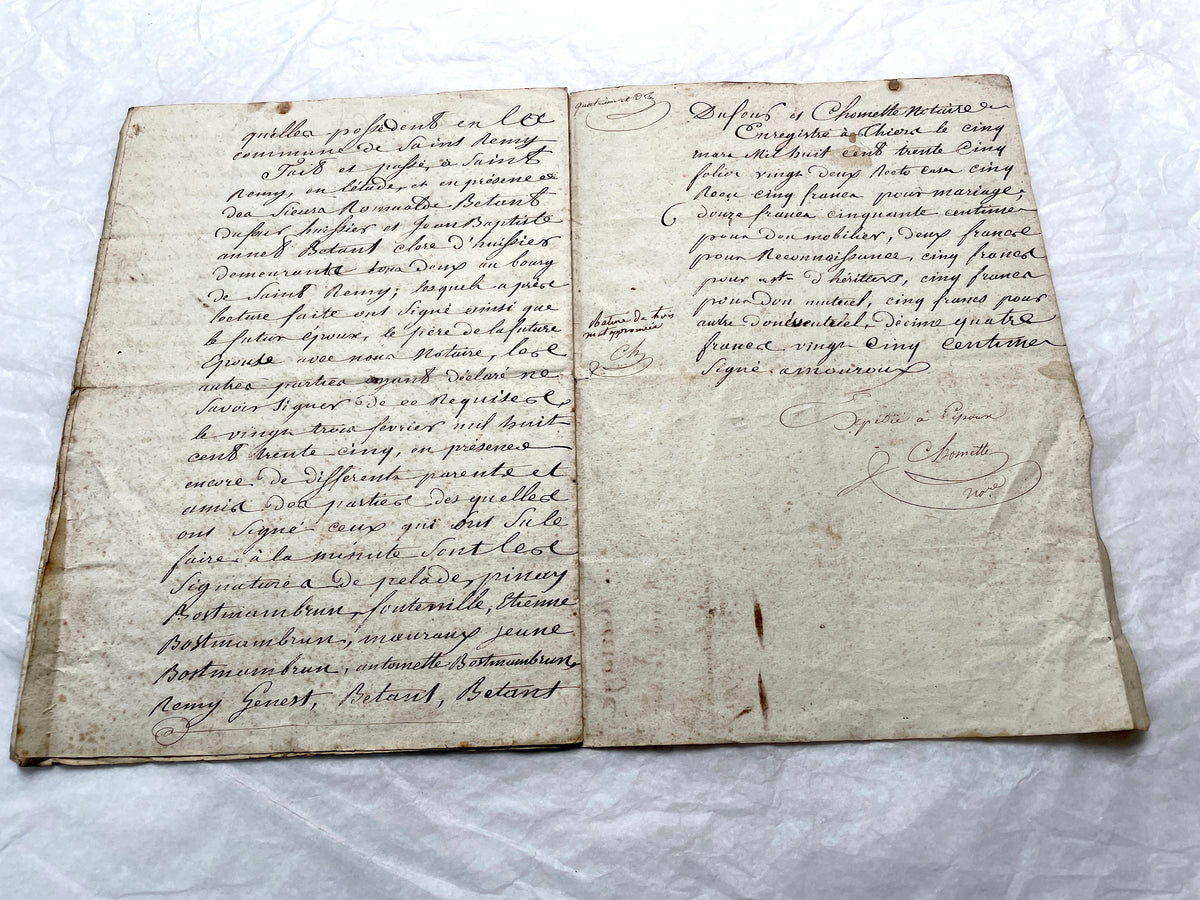 quelles possèdent en la
commune de Saint Remy
fait et passé, à Saint
Remy, en l'étude, et en présence
des Sieurs Romualde Betant
dufrer huissier et Jean Baptiste
annet Betant clerc d'huissier
demeurants tous deux au bourg
de Saint Remy; lesquels après
lecture faite ont Signé ainsi que
le futur époux, le père de la future
Epouse avec nous Notaire, les
autres parties ayant déclaré ne
Savoir Signer de ce Requises,
le vingt trois fevrier mil huit
cent trente cinq, en présence
encore de differents parents et
amis des parties desquelles
ont Signé ceux qui ont Su le
faire à la minute Sont les
Signatures de pelade, pinay
Bostmambrun, fonteville, Etienne
Bostmambrun, mouroux jeune
Bostmambrun, antoinette Bostmambrun,
Remy Genest, Betant, Betant
quatrieme et
Dufour et Chomette Notaire
Enregistré à Thiers le cinq
mars Mil huit cent trente Cinq
folio vingt deux Recto cases cinq
Reçu cinq francs pour mariage,
douze francs cinquante centimes
pour don mobilier, deux francs
pour Reconnaissance, cinq francs
pour d'héritiers, cinq francs
pour don mutuel, cinq francs pour
autre don éventuel, décime quatre
francs vingt cinq centimes
Signé amouroux
Rature de trois
mots approuvée
Ch
Expédié à l'époux
Chomette
no.re